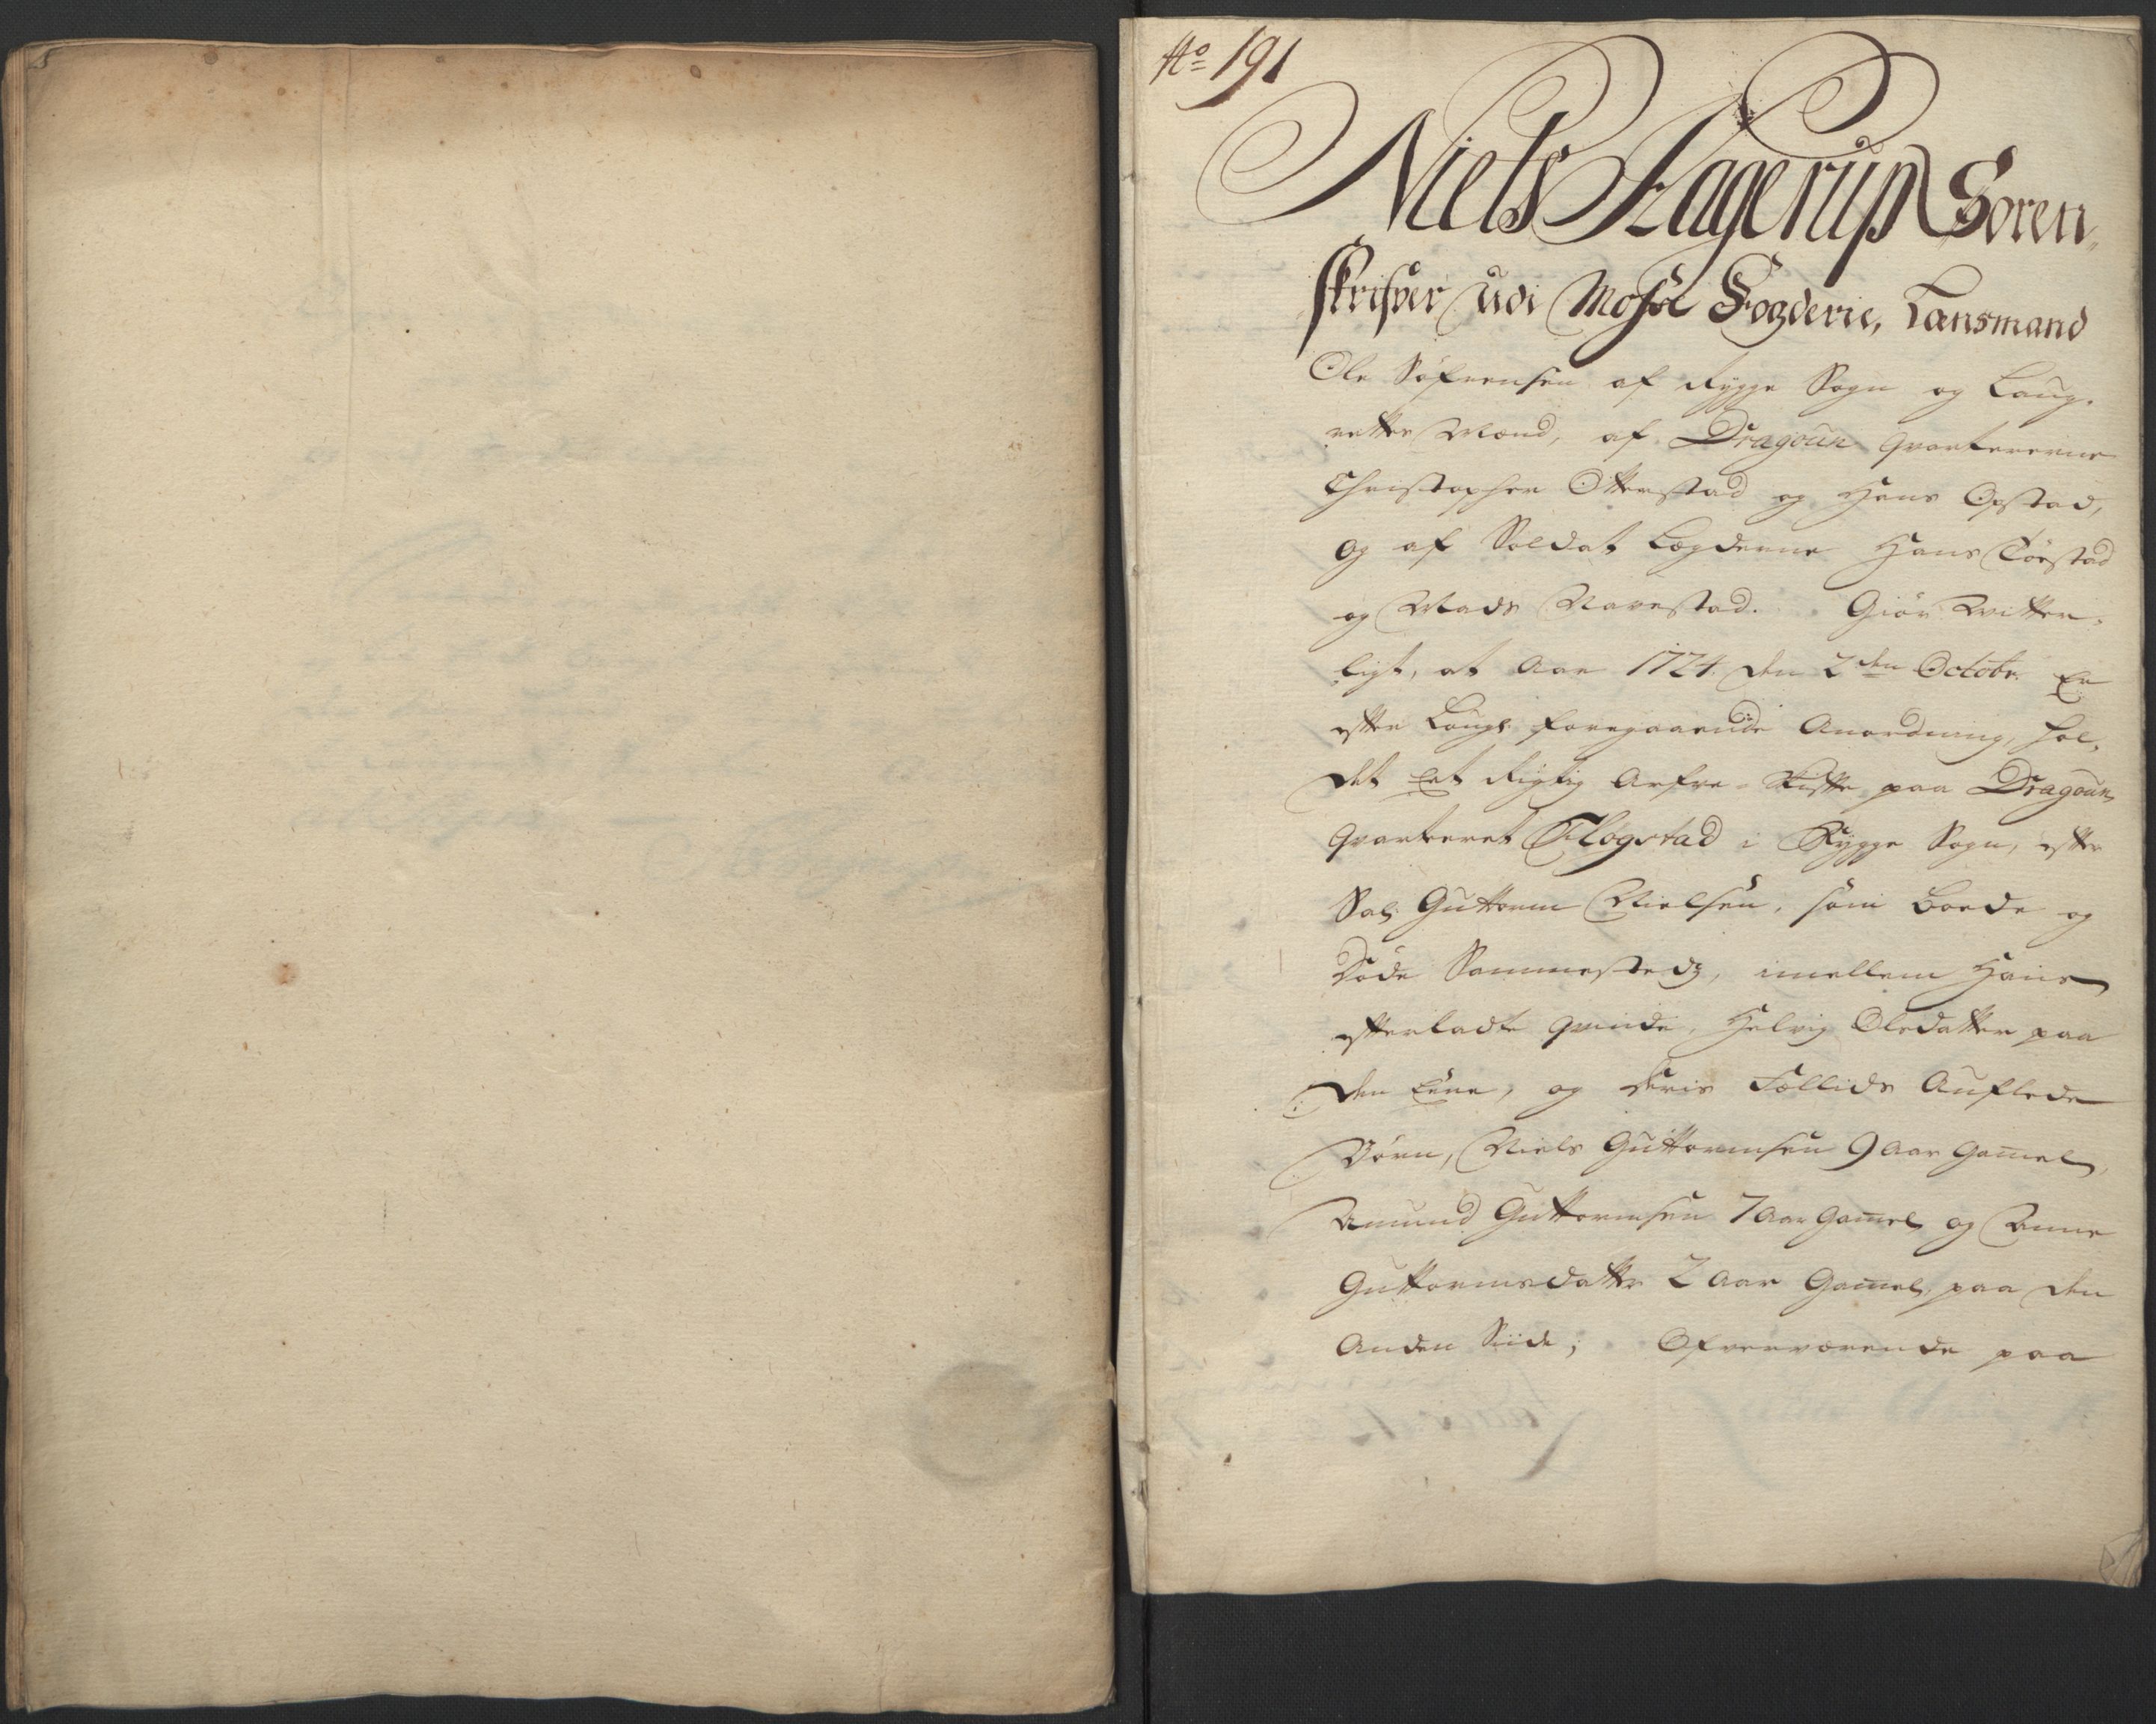 No 191
Niels Fagerup Soren„
skrifver udi Mosse Fogderie, Lænsmand
Ole Søfrensen af Rygge Sogn og Laug„
rettes Mænd, af Dragoun qvartererne
Christopher Otterstad og Hans Opstad,
og af Soldat Legderne Hans Tørstad
og Mads Navestad. Giør Witter„
ligt, at Aar 1724. den 2den Octobr. Er
efter Lougl. foregaaende Anordning, hol„
det Et Rigtig Arfve-Skifte paa Dragoun
Qvarteret Flogstad i Rygge Sogn, efter
Sal: Guttorm Nielsen, som boede og
Døde Sammestedz, imellem Hans
efterladte Qvinde, Helvig Olesdatter paa
den Eene, og deris Sællids Auflede
Børn, Niels Guttormsen 9 Aar Gamel,
Amund Guttormsen 7 Aar Gamel og Anne
Guttormsdatter 2 Aar Gamel, paa den
Anden Siide; Ofverværende paa